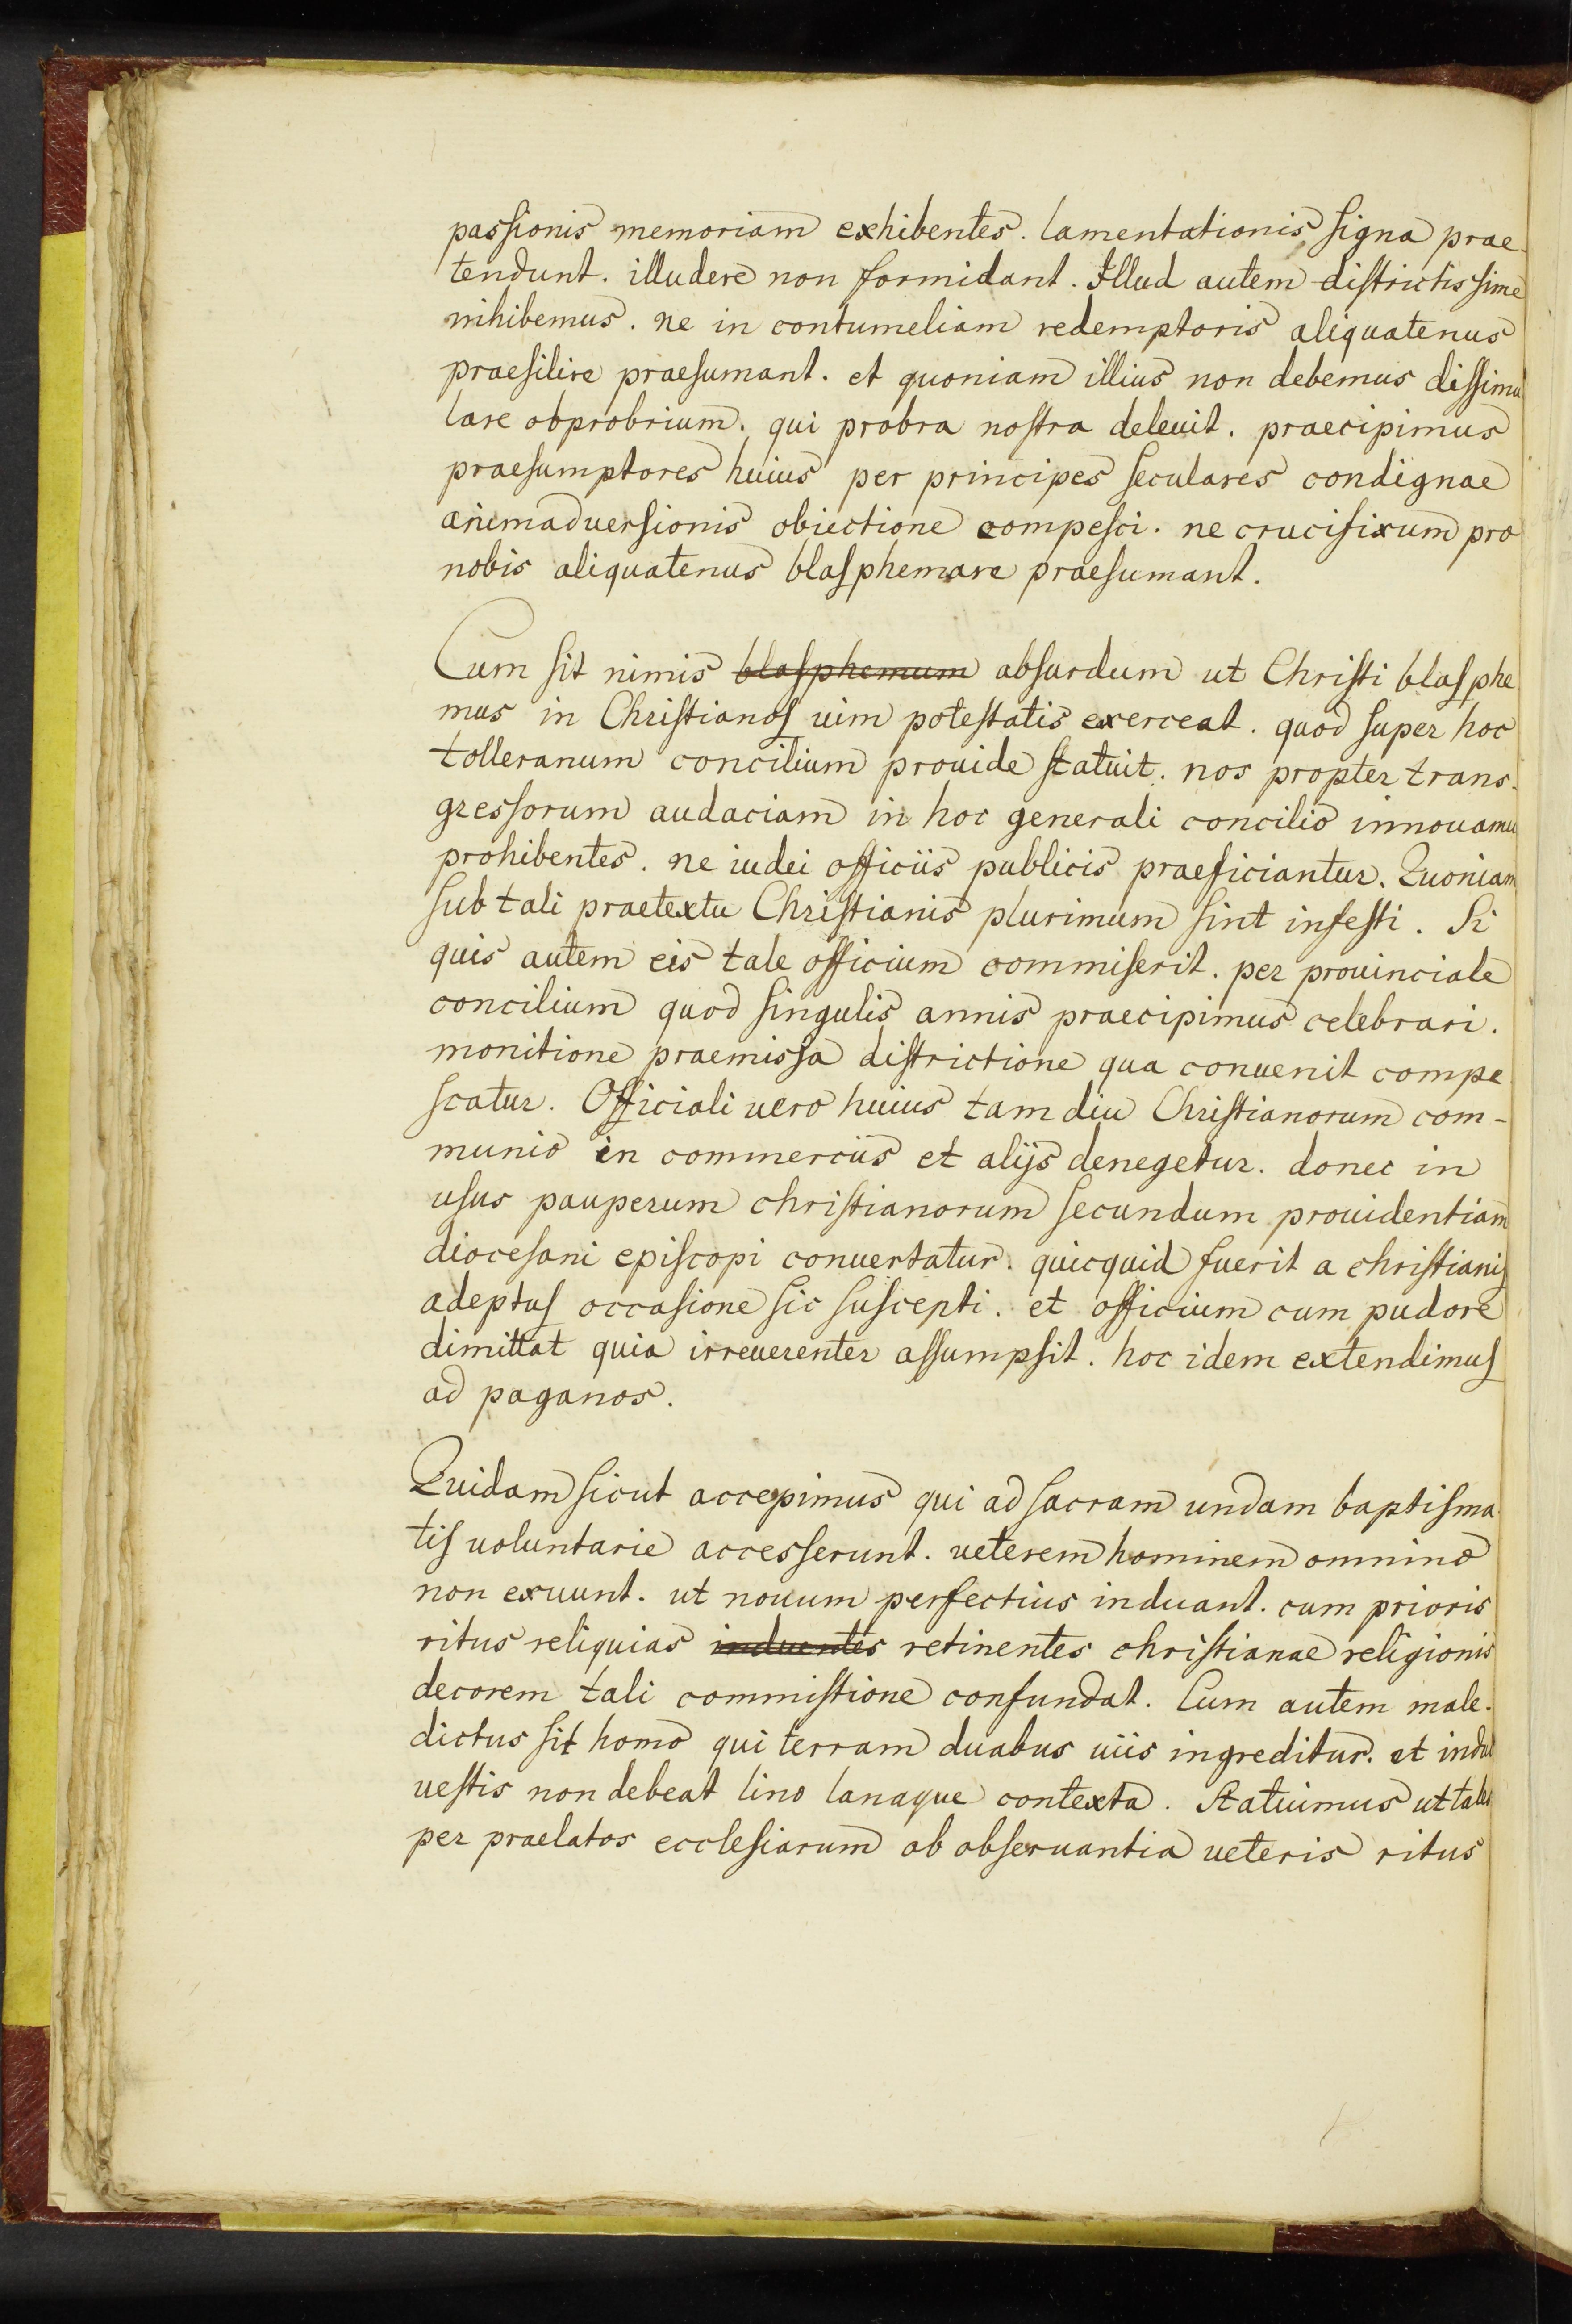 passionis memoriam exhibentes. lamentationis signa prae-
tendunt. illudere non formidant. Illud autem districtissime
inhibemus. ne in contumeliam redemptoris aliquatenus
praesilire praesumant. et quoniam illius non debemus dissimu
lare obprobrium. qui probra nostra deleuit. praecipimus
praesumptores huius per principes seculares condignae
animaduersionis obiectione compesci. ne crucifixum pro
nobis aliquatenus blasphemare praesumant.
Cum sit nimis blasphemum absurdum ut Christi blasphe
mus in Christianos uim potestatis exerceat. quod super hoc
tolleranum concilium prouide statuit. nos propter trans-
gressorum audaciam in hoc generali concilio innouamu
prohibentes. ne iudei officiis publicis praeficiantur. Quoniam
sub tali praetextu Christianis plurimum sint infesti. Si
quis autem eis tale officium commiserit. per prouinciale
concilium quod singulis annis praecipimus celebrari.
monitione praemissa districtione qua conuenit compe
scatur. Officiali uero huius tam diu Christianorum com-
munio in commerciis et alijs denegetur. donec in
usus pauperum christianorum secundum prouidentiam
diocesani episcopi conuertatur. quicquid fuerit a christianis
adeptus occasione sic suscepti. et officium cum pudore
dimittat quia irreuerenter assumpsit. hoc idem extendimus
ad paganos.
Quidam sicut accepimus qui ad sacram undam baptisma-
tis uoluntarie accesserunt. ueterem hominem omnino
non exuunt. ut nouum perfectius induant. cum prioris
ritus reliquias induentes retinentes christianae religionis
decorem tali commistione confundat. Cum autem male-
dictus sit homo qui terram duabus uiis ingreditur. et indui
uestis non debeat lino lanaque contexta. Statuimus ut tales
per praelatos ecclesiarum ab obseruantia ueteris ritus